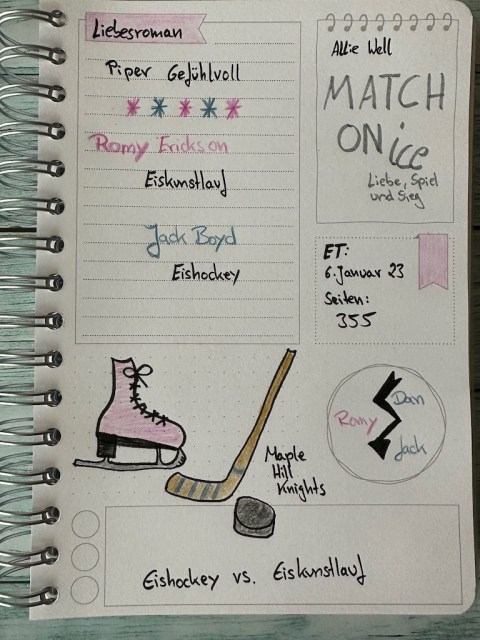 Liebesroman
Piper Gefühlvoll
Romy Erickson
Eiskunstlauf
Jack Boyd
Eishockey
Allie Well
MATCH
ON ice
Liebe, Spiel
und Sieg
ET:
6. Januar 23
Seiten:
355
Maple
Hill
Knights
Romy
Dan
Jack
Eishockey vs. Eiskunstlauf